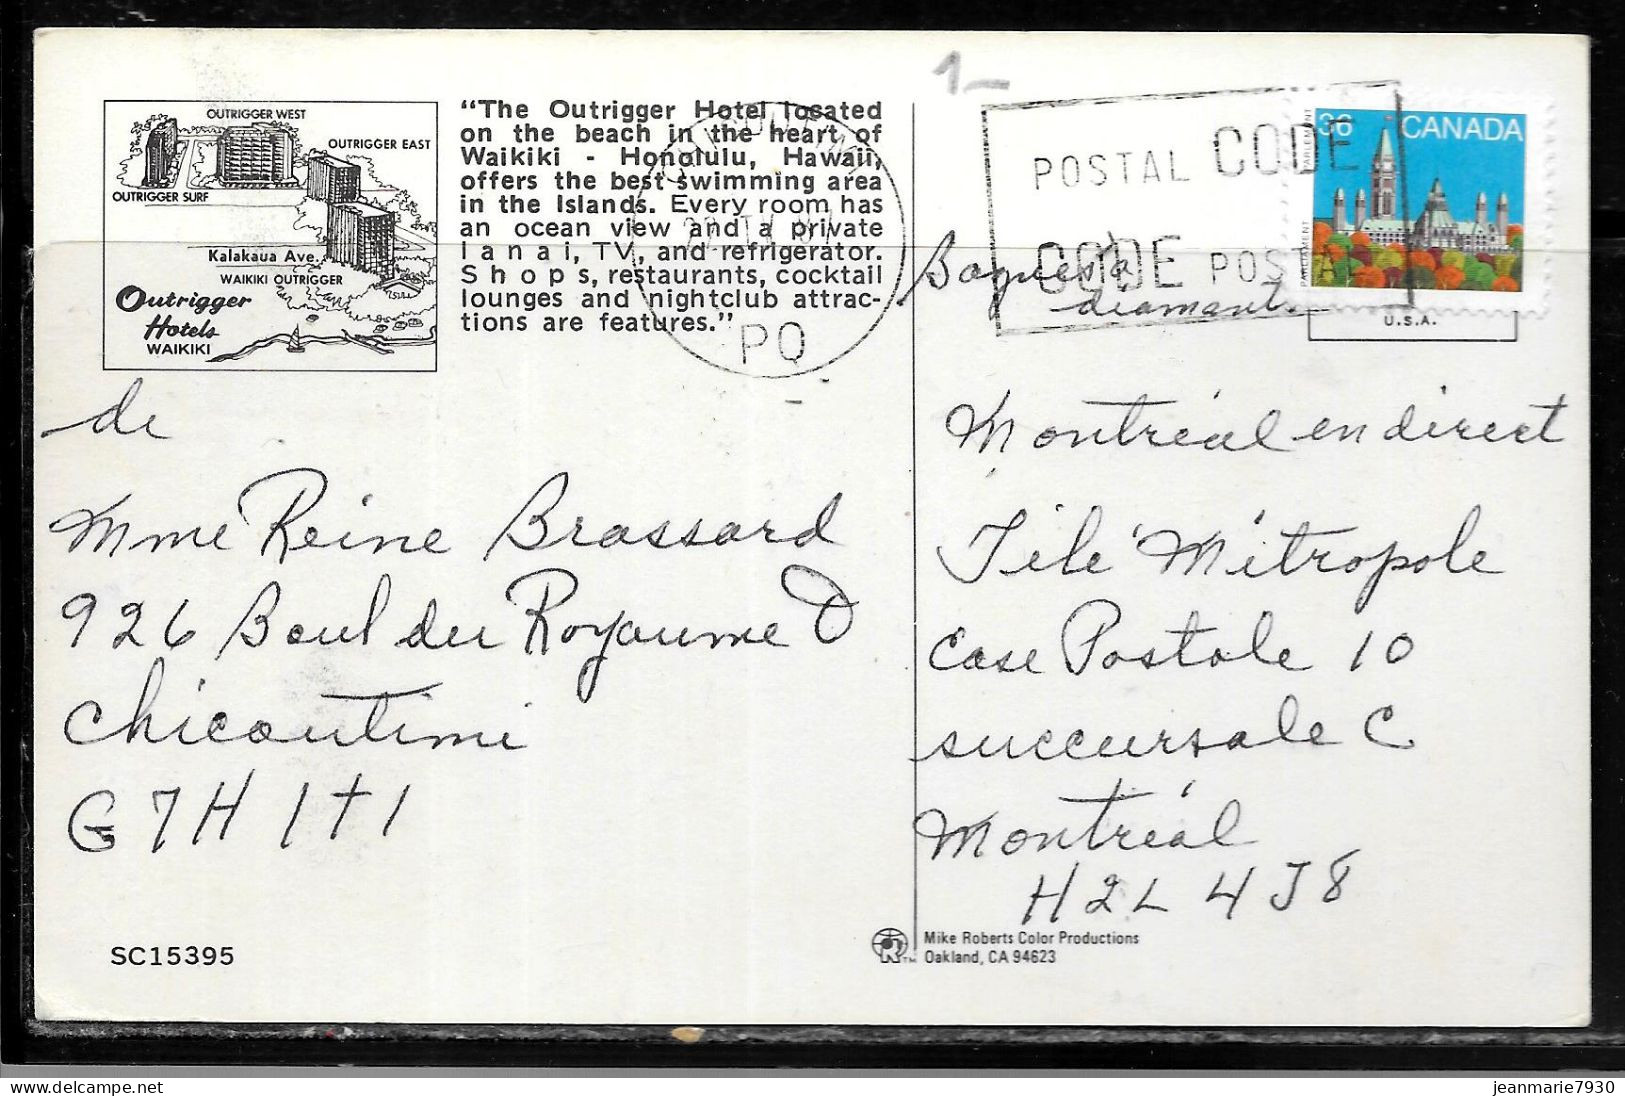 OUTRIGGER WEST
OUTRIGGER EAST
OUTRIGGER SURF
Kalakaua Ave.
WAIKIKI OUTRIGGER
Outrigger
Hotels
WAIKIKI
"The Outrigger Hotel located
on the beach in the heart of
Waikiki - Honolulu, Hawaii,
offers the best swimming area
in the Islands. Every room has
an ocean view and a private
lanai, TV, and refrigerator.
Shops, restaurants, cocktail
lounges and nightclub attrac-
tions are features."
PQ
1-
POSTAL CODE
CODE POSTAL
36 CANADA
PARLIAMENT PARLEMENT
U.S.A.
diamant.
de
Mme Reine Brassard
926 Boul du Royaume O
Chicoutimi
G7H 1T1
Montréal en direct
Télé Métropole
Case Postale 10
succursale C
Montréal
H2L 4J8
SC15395
Mike Roberts Color Productions
Oakland, CA 94623
TM
jeanmarie7930